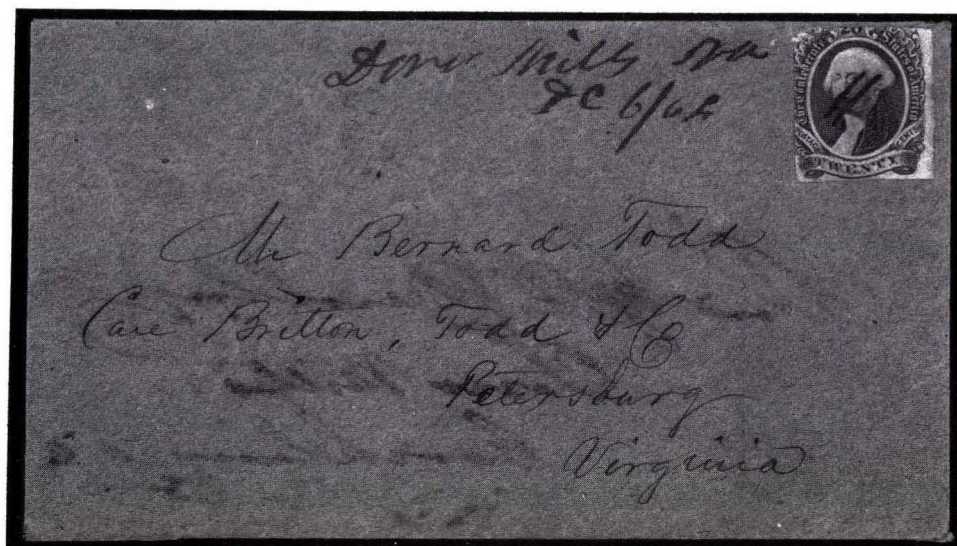 Dover Mills Va
DC 6/62
The Confederate States of America
TWENTY
Mr Bernard Todd
Care Britton, Todd & Co
Petersburg
Virginia